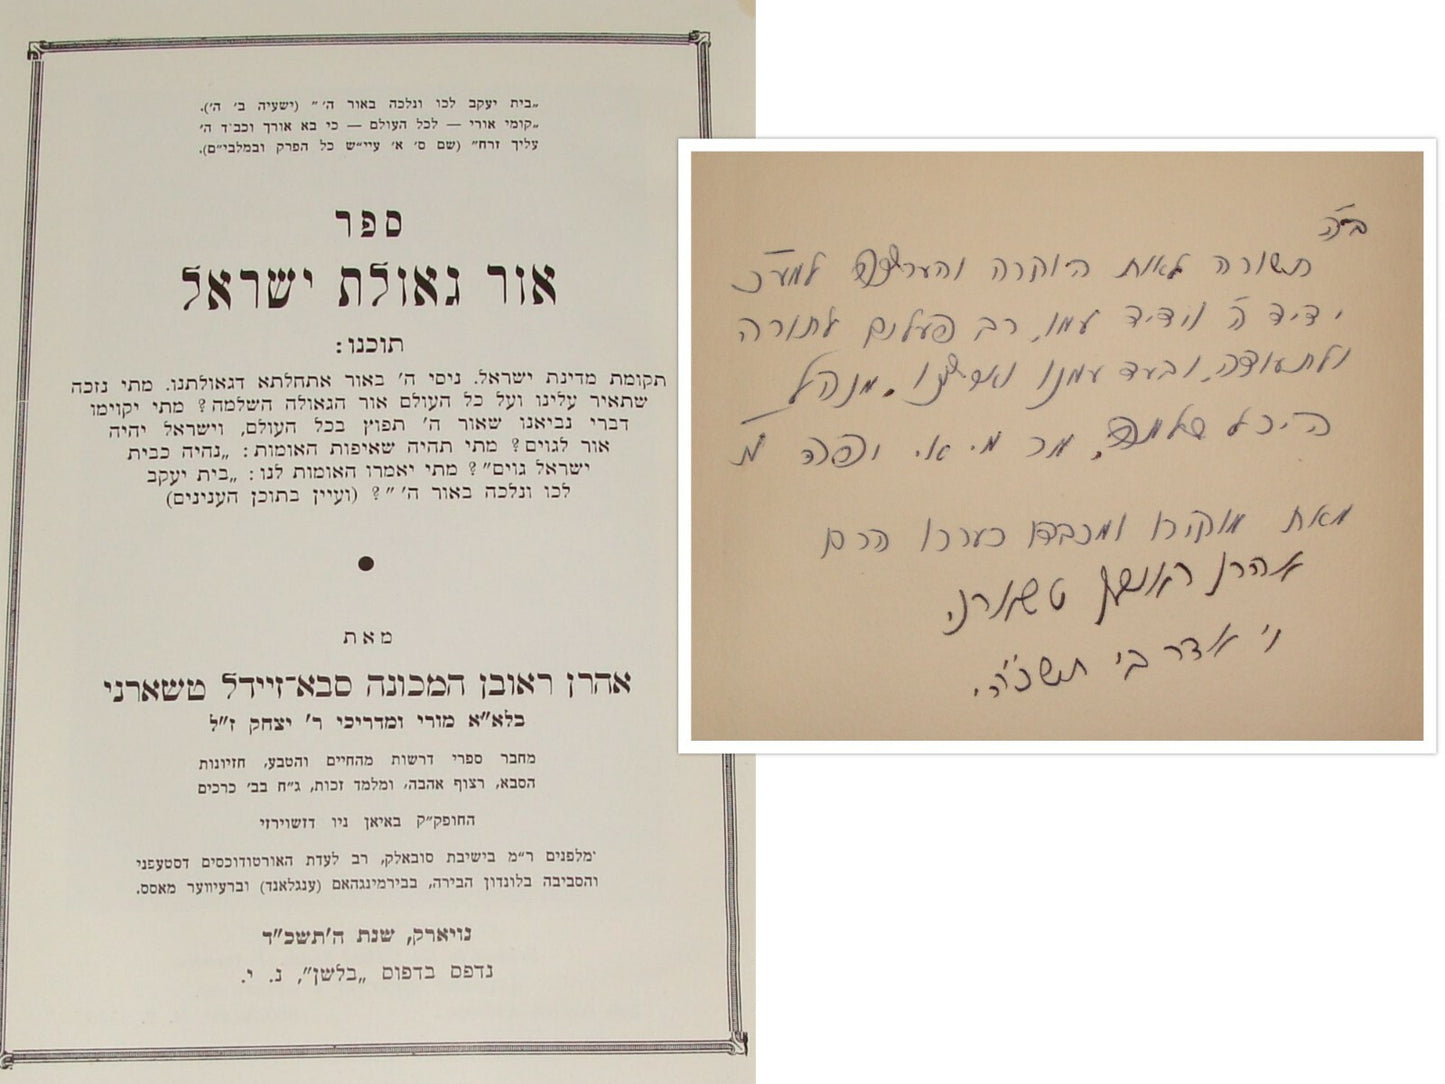 „בית יעקב לכו ונלכה באור ה׳” (ישעיה ב׳ ה׳).
„קומי אורי — לכל העולם — כי בא אורך וכב׳ד ה׳
עליך זרח” (שם ס׳ א׳ עיי״ש כל הפרק ובמלבי״ם).
ספר
אור גאולת ישראל
תוכנו:
תקומת מדינת ישראל. ניסי ה׳ באור אתחלתא דגאולתנו. מתי נזכה
שתאיר עלינו ועל כל העולם אור הגאולה השלמה? מתי יקויימו
דברי נביאנו שאור ה׳ תפוץ בכל העולם, וישראל יהיה
אור לגוים? מתי תהיה שאיפות האומות: „נהיה כבית
ישראל גוים”? מתי יאמרו האומות לנו: „בית יעקב
לכו ונלכה באור ה׳”? (ועיין בתוכן הענינים)
מאת
אהרן ראובן המכונה סבא־זיידל טשארני
בלא״א מורי ומדריכי ר׳ יצחק ז״ל
מחבר ספרי דרשות מהחיים והטבע, חזיונות
הסבא, רצוף אהבה, ומלמד זכות, ג״ח בב׳ כרכים
החופק״ק באיאן ניו דזשוירזי
מלפנים ר״מ בישיבת סובאלק, רב לעדת האורטודוכסים דסטעפני
והסביבה בלונדון הבירה, בבירמינגהאם (ענגלאנד) וברעיווער מאסס.
נויארק, שנת ה׳תשכ״ד
נדפס בדפוס „בלשן”, נ. י.
ב״ה
תשורה לאות היוקרה והערצה למע״כ
ידיד ה׳ וידיד עמו, רב פעלים לתורה
ולתעודה, ובעד עמנו וארצנו, מנהל
היכל שלמה, מר מ. א.
מאת מוקירו ומכבדו כערכו הרם
אהרן ראובן טשארני
ו׳ אדר ב׳ תשכ״ה.